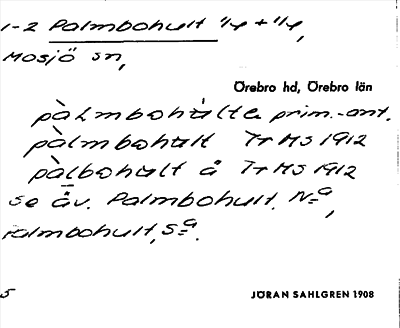 1-2 Palmbohult 1/4 + 1/4,
Mosjö sn,
Örebro hd, Örebro län
pàLmbohùlta prim.-ant.
pàlmbohult Tr HS 1912
pàlbohult å Tr HS 1912
se äv. Palmbohult, Na,
Palmbohult, Sa.
5
JÖRAN SAHLGREN 1908